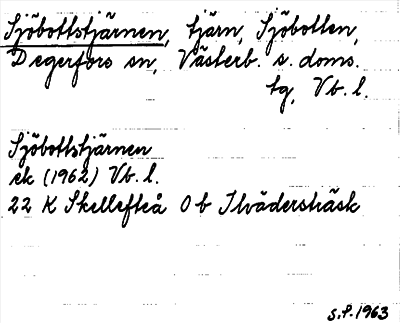 Sjöbottstjärnen, tjärn, Sjöbotten,
Degerfors sn, Västerb. s. doms.
tg, Vb. l.
Sjöbottstjärnen
ek (1962) Vb. l.
22 K Skellefteå 0 b Ilvädersträsk
S.P. 1963